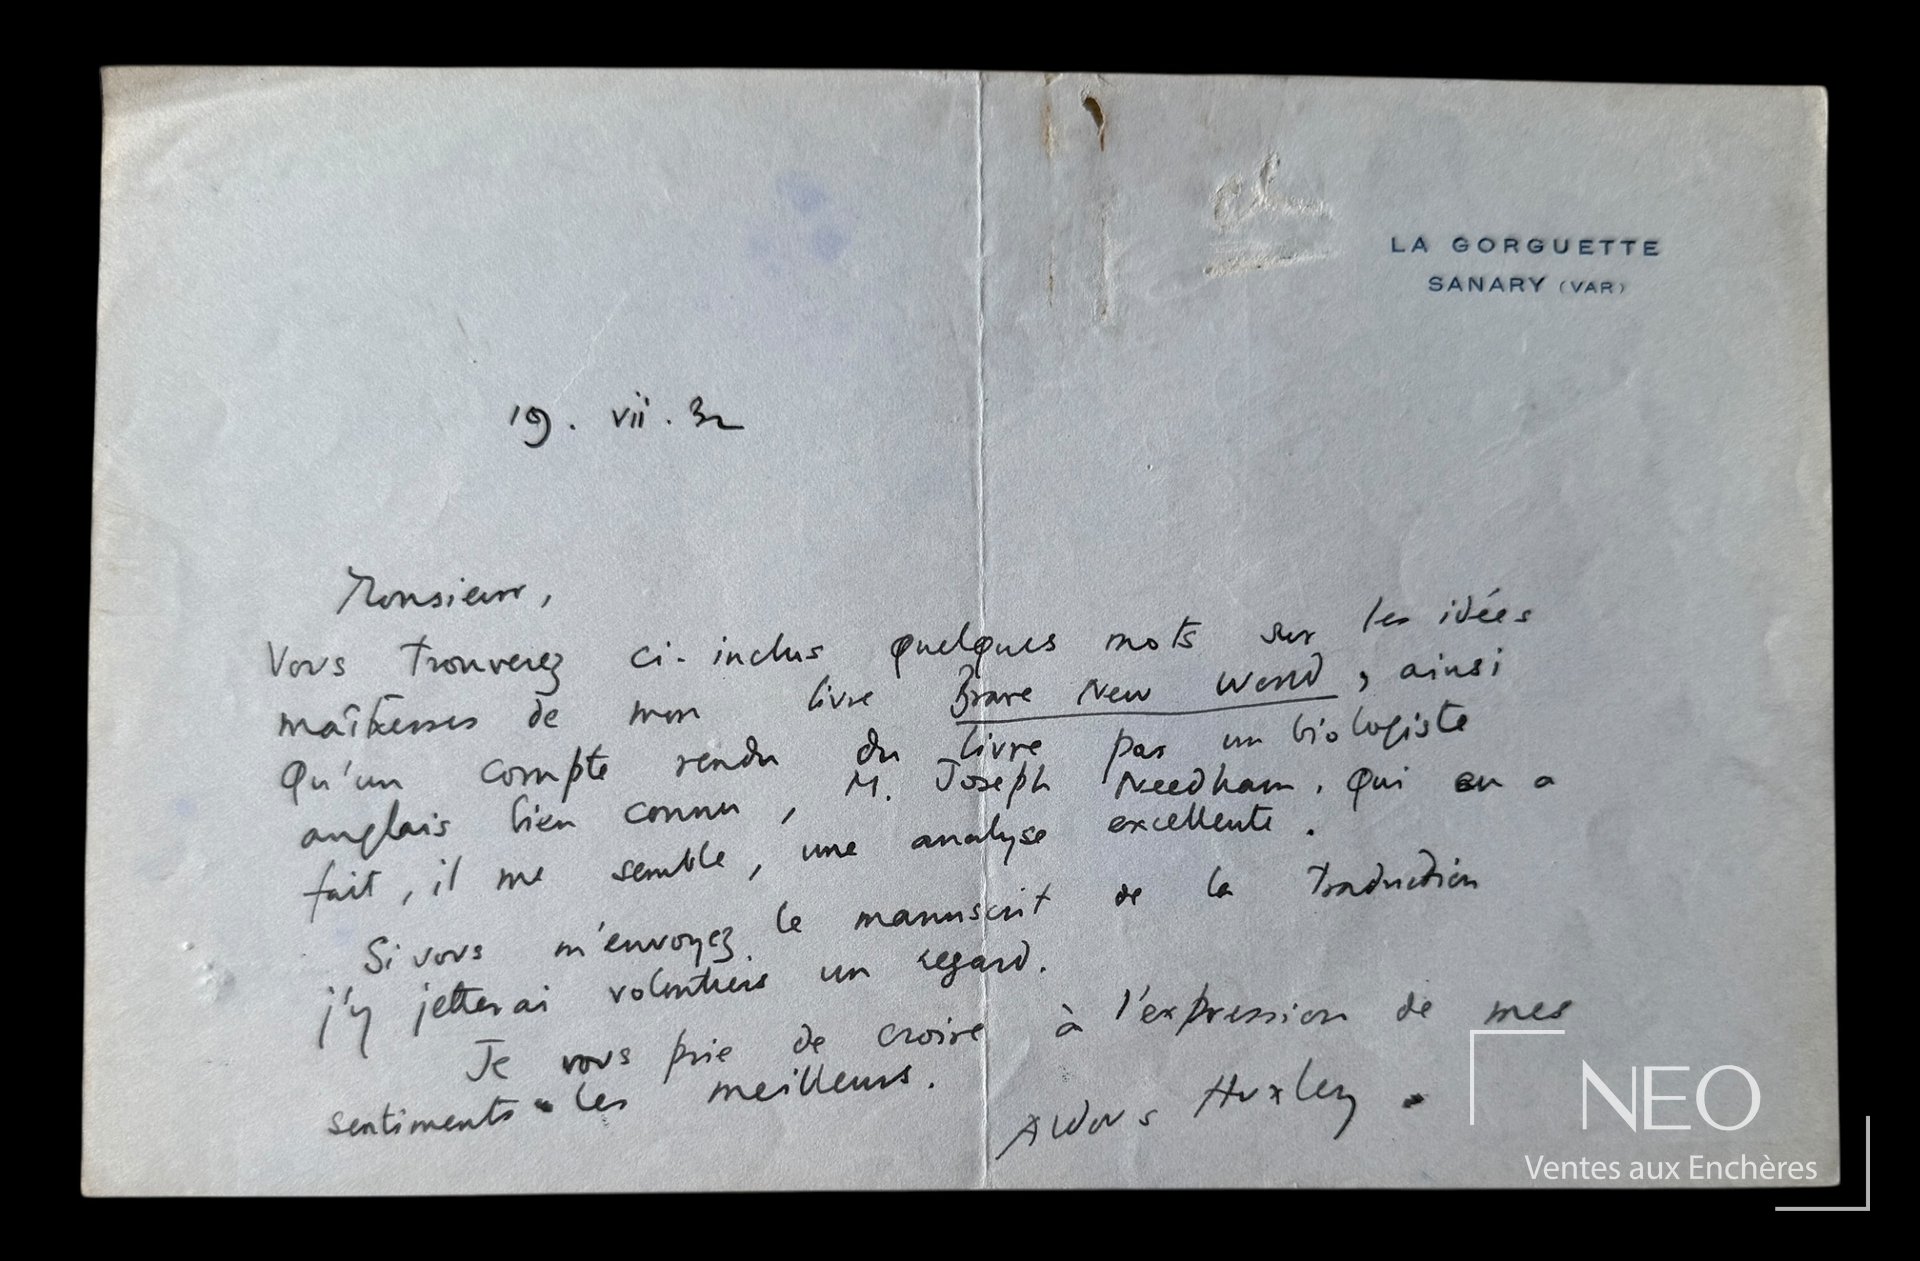 LA GORGUETTE
SANARY (VAR)
19. vii. 32
Monsieur,
Vous trouverez ci-inclus quelques mots sur les idées
maîtresses de mon livre Brave New World, ainsi
qu'un compte rendu du livre par un biologiste
anglais bien connu, M. Joseph Needham, qui en a
fait, il me semble, une analyse excellente.
Si vous m'envoyez le manuscrit de la traduction
j'y jetterai volontiers un regard.
Je vous prie de croire à l'expression de mes
sentiments les meilleurs.
Aldous Huxley.
NEO
Ventes aux Enchères